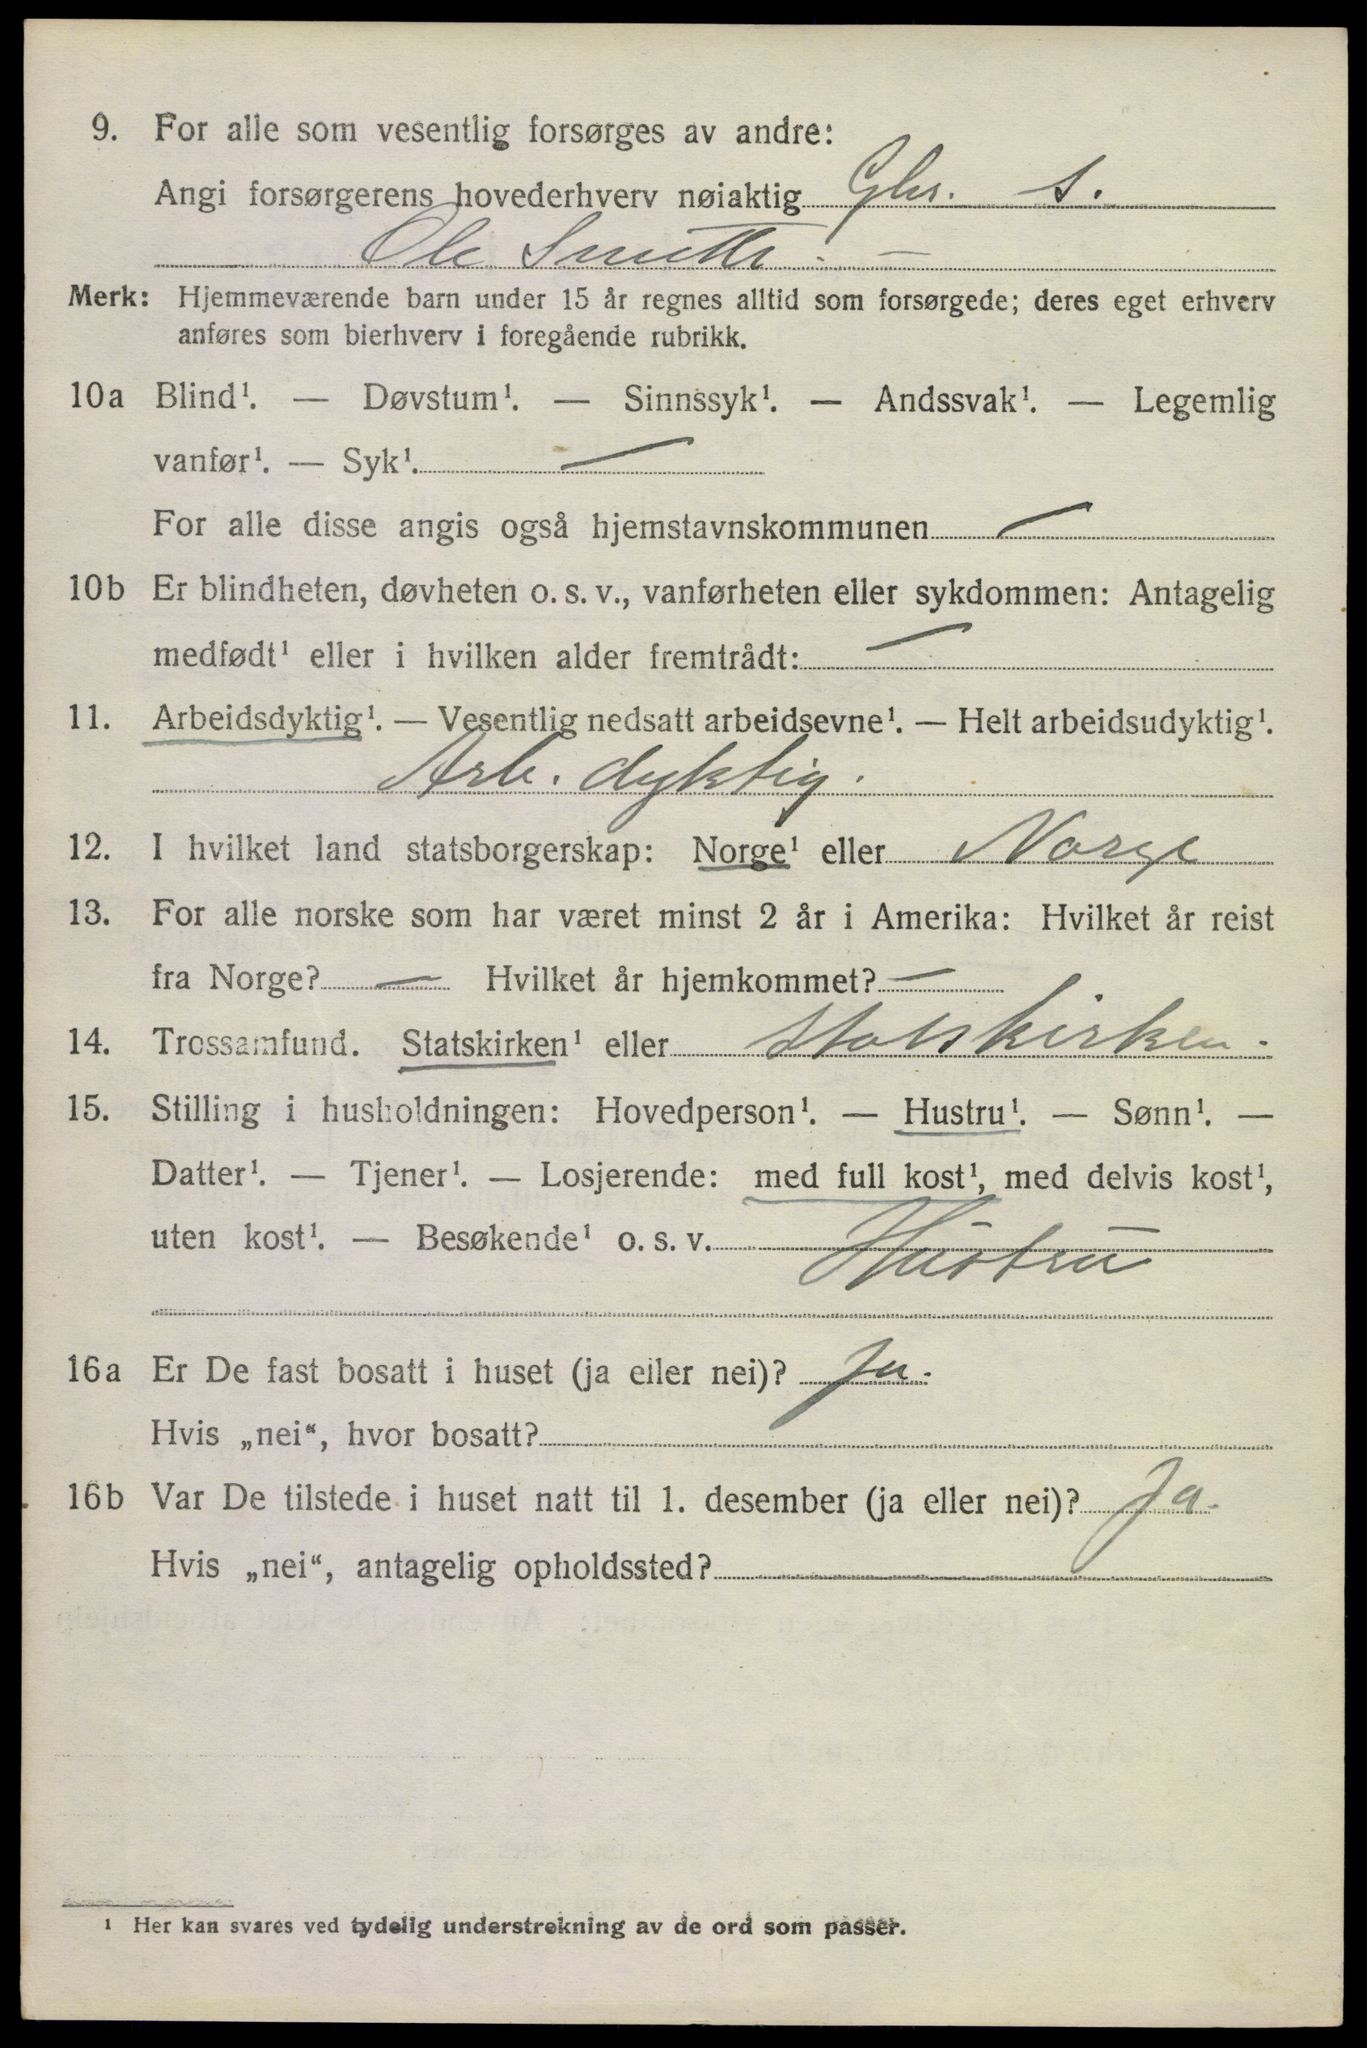 9. For alle som vesentlig forsørges av andre:
Angi forsørgerens hovederhverv nøiaktig Gbr. s.
Ole Smette. —
Merk: Hjemmeværende barn under 15 år regnes alltid som forsørgede; deres eget erhverv
anføres som bierhverv i foregående rubrikk.
10a Blind¹. — Døvstum¹. — Sinnssyk¹. — Andssvak¹. — Legemlig
vanfør¹. — Syk¹. —
For alle disse angis også hjemstavnskommunen —
10b Er blindheten, døvheten o. s. v., vanførheten eller sykdommen: Antagelig
medfødt¹ eller i hvilken alder fremtrådt: —
11. Arbeidsdyktig¹. — Vesentlig nedsatt arbeidsevne¹. — Helt arbeidsudyktig¹.
Arb. dyktig.
12. I hvilket land statsborgerskap: Norge¹ eller Norge
13. For alle norske som har været minst 2 år i Amerika: Hvilket år reist
fra Norge? — Hvilket år hjemkommet? —
14. Trossamfund. Statskirken¹ eller Statskirken.
15. Stilling i husholdningen: Hovedperson¹. — Hustru¹. — Sønn¹. —
Datter¹. — Tjener¹. — Losjerende: med full kost¹, med delvis kost¹,
uten kost¹. — Besøkende¹ o. s. v. Hustru
16a Er De fast bosatt i huset (ja eller nei)? Ja.
Hvis „nei“, hvor bosatt?
16b Var De tilstede i huset natt til 1. desember (ja eller nei)? Ja.
Hvis „nei“, antagelig opholdssted?
¹ Her kan svares ved tydelig understrekning av de ord som passer.